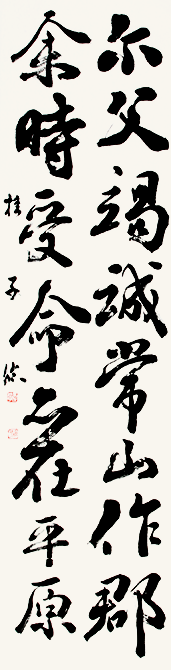 尔父竭誠常山作郡
余時受命亦在平原
桂子